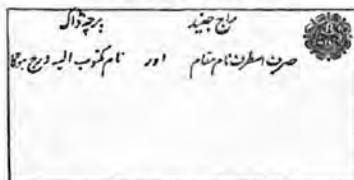 پرچہ ڈاک
صرف اسطرف نام مقام اور نام مکتوب الیہ درج ہوگا